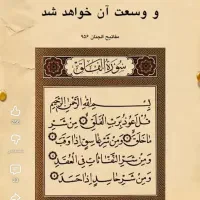 و وسعت آن خواهد شد
مفاتیح الجنان ۹۵۶
سورة الفلق
بسم الله الرحمن الرحيم
قل اعوذ برب الفلق ۝ من شر
ما خلق ۝ ومن شر غاسق اذا وقب ۝
ومن شر النفاثات في العقد ۝
ومن شر حاسد اذا حسد ۝